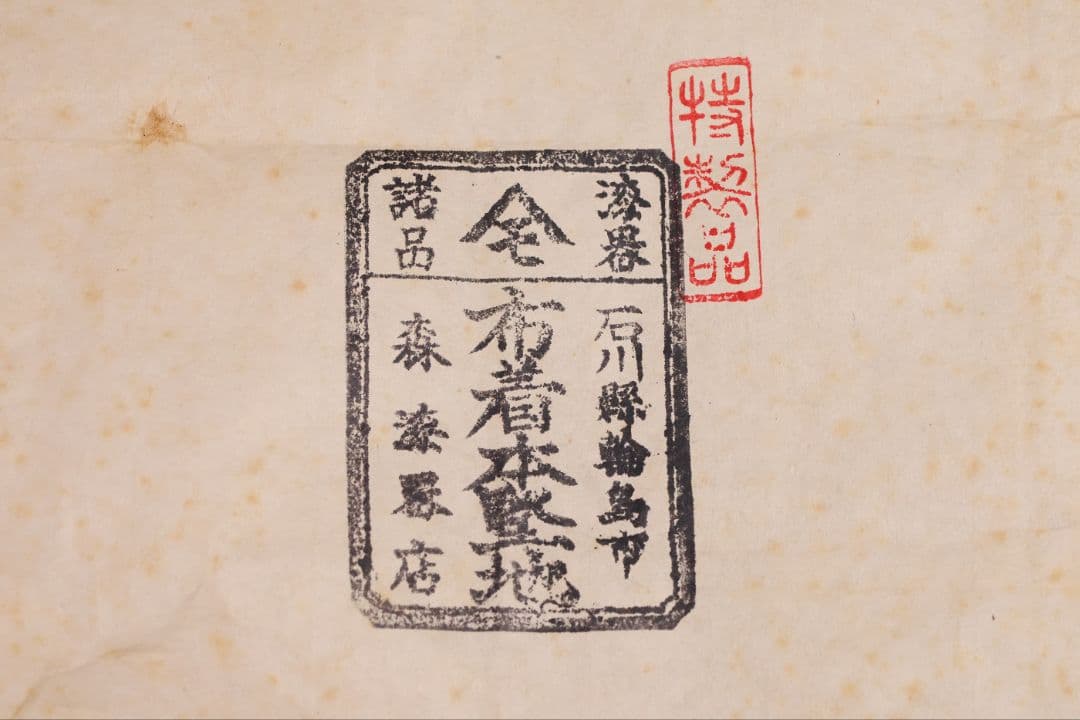 特製品
漆器
宅
諸品
石川縣輪島市
布着本堅地
森漆器店